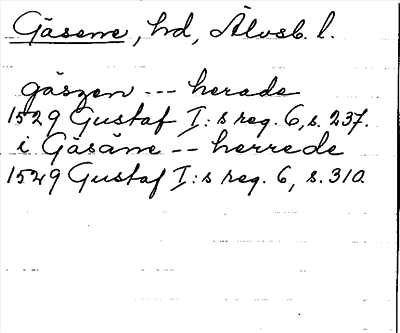 Gäsene, hd, Älvsb. l.
gäszen --- herade
1529 Gustaf I:s reg. 6, s. 237.
i Gäsäne -- herrede
1529 Gustaf I:s reg. 6, s. 310.